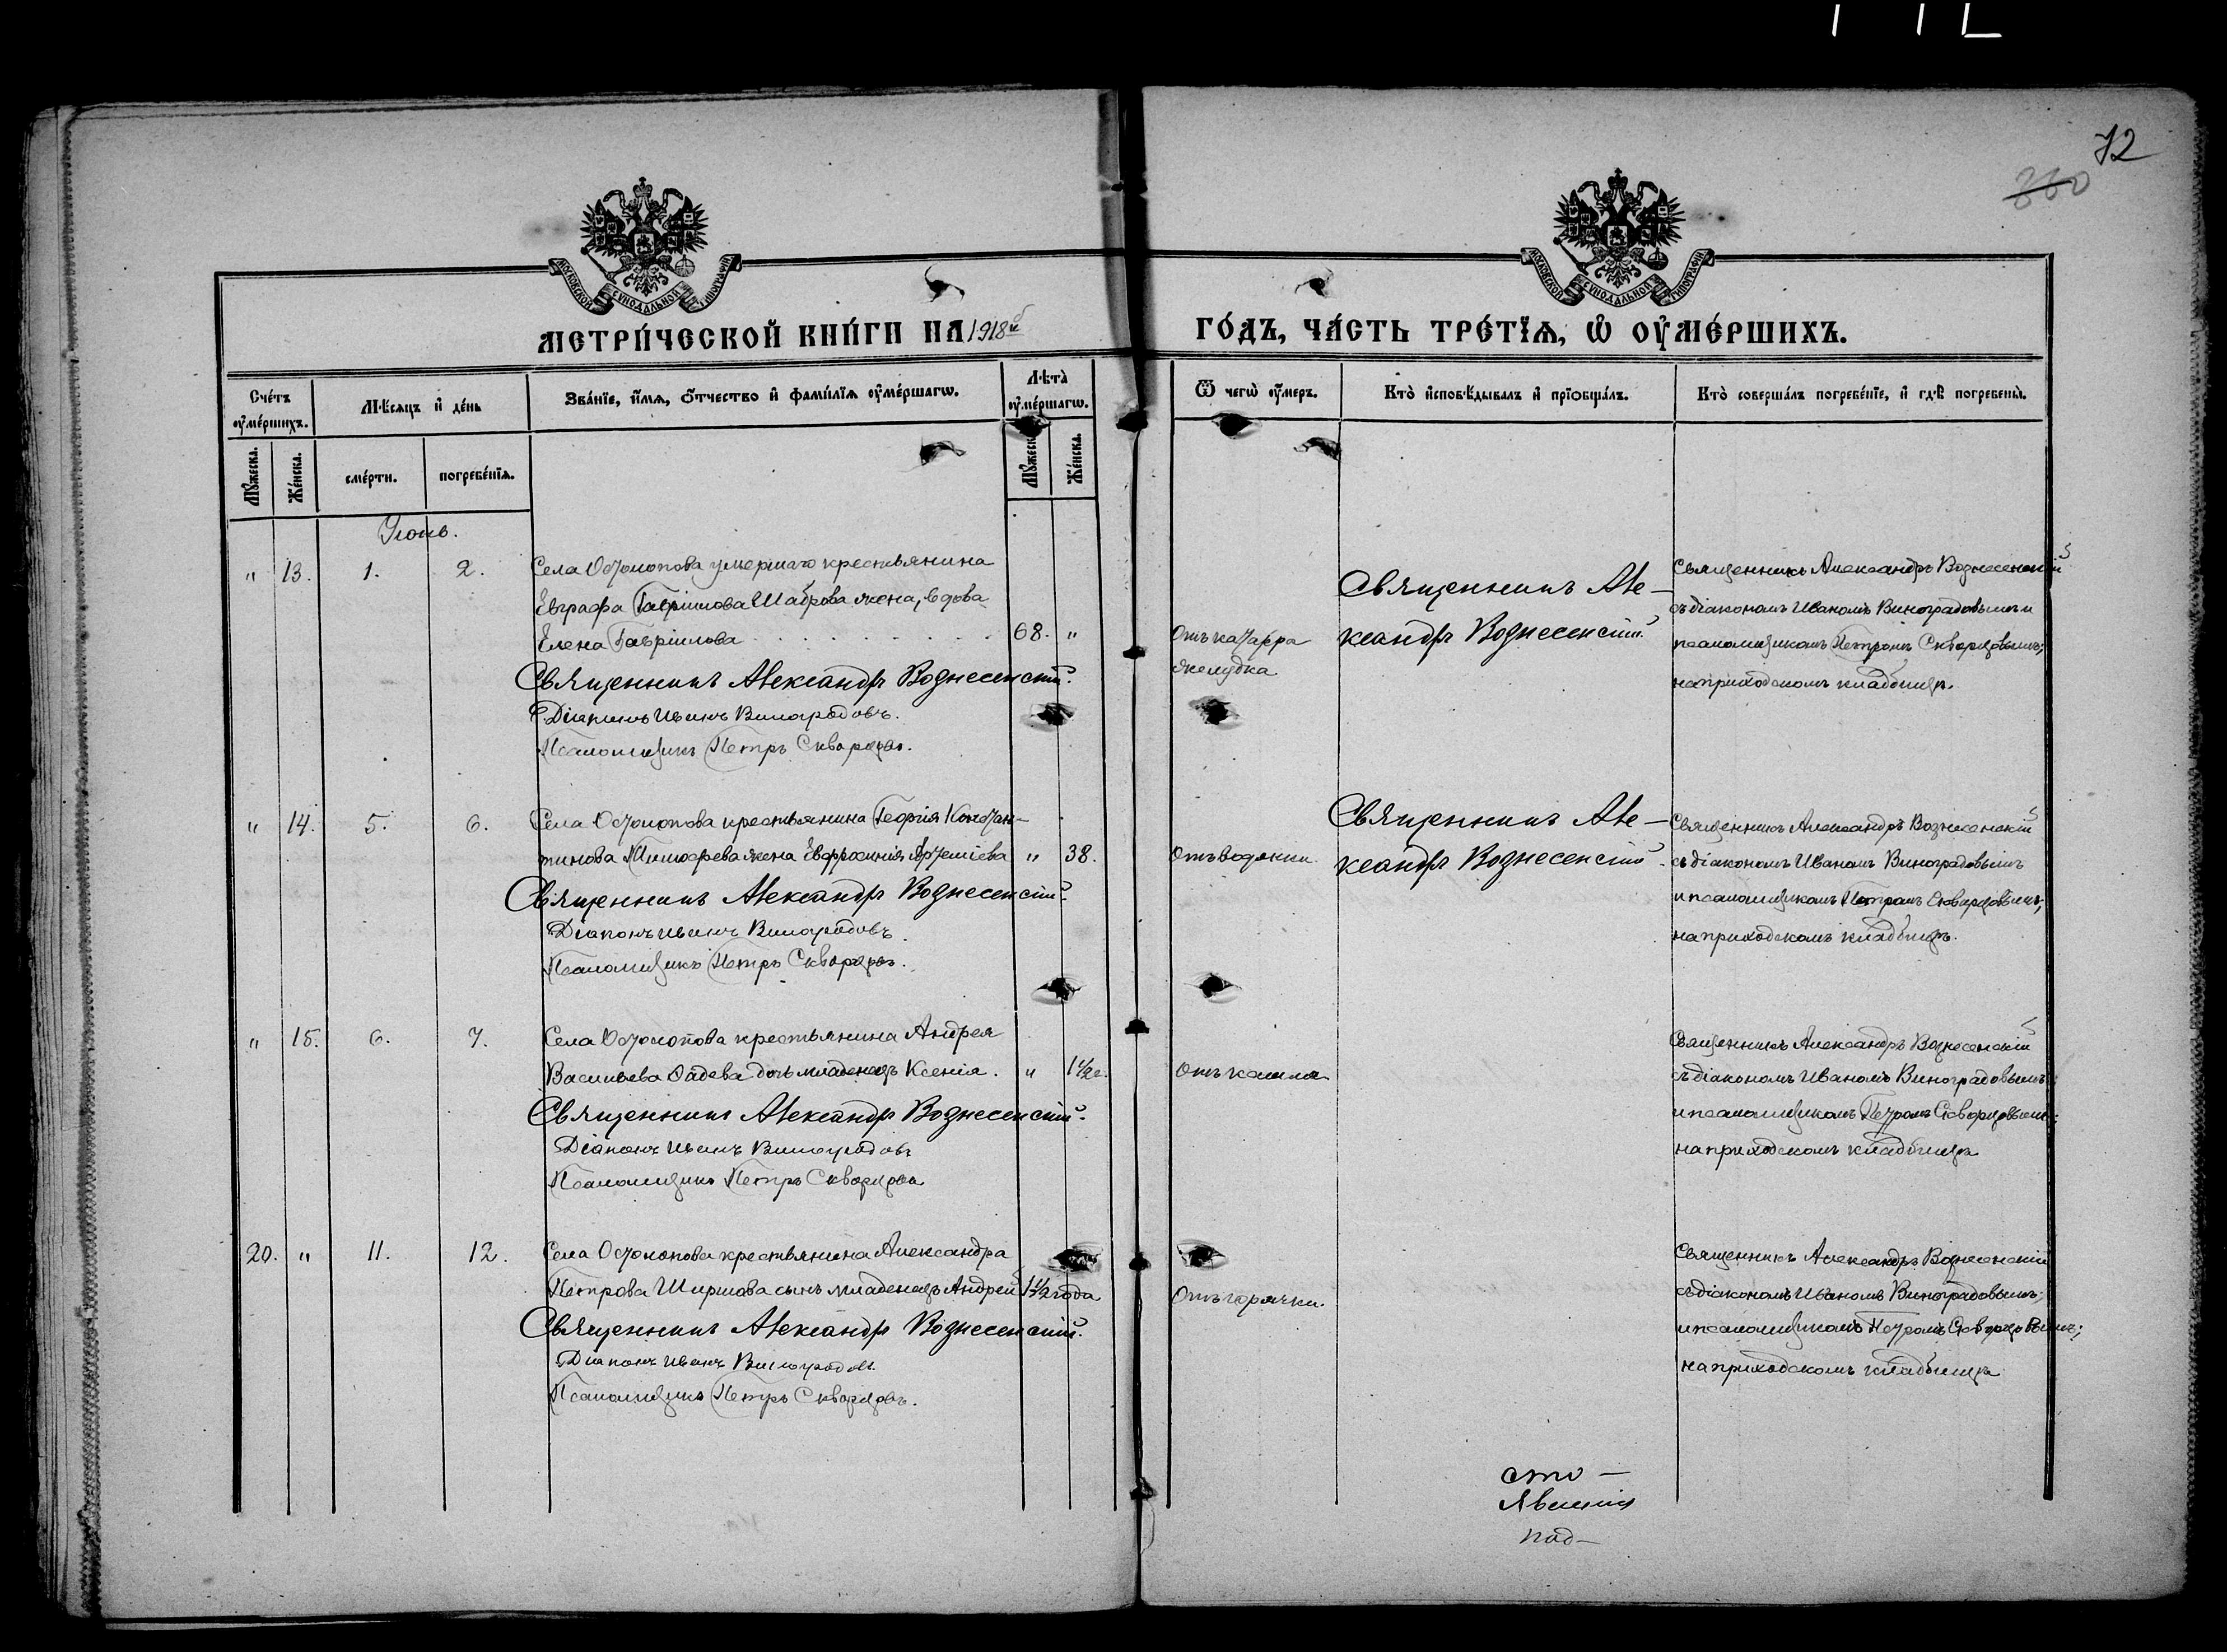 72
360
МОСКОВСКОЙ СѴНОДАЛЬНОЙ ТИПОГРАФІИ
МОСКОВСКОЙ СѴНОДАЛЬНОЙ ТИПОГРАФІИ
МЕТРИ́ЧЕСКОЙ КНИ́ГИ НА 1918й
ГО́ДЪ, ЧА́СТЬ ТРЕ́ТЇѦ, Ѡ҆ ОУ҆МЕ́РШИХЪ.
Сче́тъ оу҆ме́ршихъ.
Мѣ́сяцъ и҆ де́нь
Зва́нїе, и҆́мѧ, ѻ҆́тчество и҆ фами́лїѧ оу҆ме́ршагѡ.
Лѣта̀ оу҆ме́ршагѡ.
Ѿ чегѡ̀ оу҆́меръ.
Кто̀ и҆сповѣ́дывалъ и҆ прїѻбща́лъ.
Кто̀ соверша́лъ погребе́нїе, и҆ гдѣ̀ погребены̀.
Мꙋ́жеска.
Же́нска.
сме́рти.
погребе́нїѧ.
Мꙋ́жеск
Же́нска.
Іюнь.
" 13. 1. 2. Села Остолопова умершаго крестьянина
Евграфа Гаврилова Шаброва жена, вдова
Елена Гаврилова 68. "
Священникъ Александръ Вознесенскій.
Діаконъ Иванъ Виноградовъ.
Псаломщикъ Петръ Скворцовъ.
Отъ катарра
желудка
Священникъ Але-
ксандръ Вознесенскій.
Священникъ Александръ Вознесенскій
съ діакономъ Иваномъ Виноградовымъ и
псаломщикомъ Петромъ Скворцовымъ;
на приходскомъ кладбищѣ.
" 14. 5. 6. Села Остолопова крестьянина Георгія Констан-
тинова жена Евфросинія Артеміева " 38.
Священникъ Александръ Вознесенскій.
Діаконъ Иванъ Виноградовъ
Псаломщикъ Петръ Скворцовъ.
Отъ водянки.
Священникъ Але-
ксандръ Вознесенскій.
Священникъ Александръ Вознесенскій
съ діакономъ Иваномъ Виноградовымъ
и псаломщикомъ Петромъ Скворцовымъ;
на приходскомъ кладбищѣ.
" 15. 6. 7. Села Остолопова крестьянина Андрея
Васильева Фадева дочь младенецъ Ксенія. " 1½г.
Священникъ Александръ Вознесенскій.
Діаконъ Иванъ Виноградовъ
Псаломщикъ Петръ Скворцовъ
Отъ кашля
Священникъ Александръ Вознесенскій
съ діакономъ Иваномъ Виноградовымъ
и псаломщикомъ Петромъ Скворцовымъ;
на приходскомъ кладбищѣ
20. " 11. 12. Села Остолопова крестьянина Александра
Петрова Ширшова сынъ младенецъ Андрей 1½ года
Священникъ Александръ Вознесенскій.
Діаконъ Иванъ Виноградовъ.
Псаломщикъ Петръ Скворцовъ.
Отъ горячки.
Священникъ Александръ Вознесенскій
съ діакономъ Иваномъ Виноградовымъ;
и псаломщикомъ Петромъ Скворцовымъ;
на приходскомъ кладбищѣ
сто-
под-